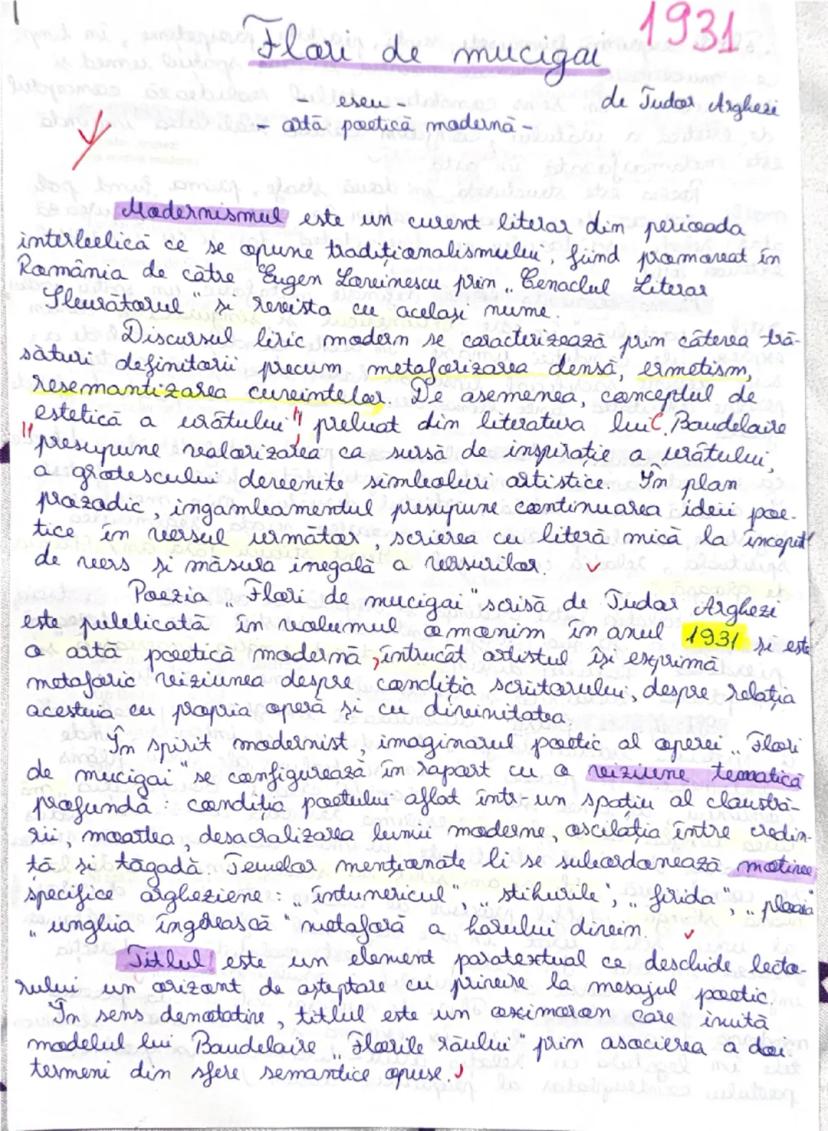 1931
Flori de mucigai
de Tudor Arghezi
- eseu -
- artă poetică modernă -
Modernismul este un curent literar din perioada
interbelică ce se opune tradiționalismului, fiind promovat în
România de către Eugen Lovinescu prin „Cenaclul Literar
Sburătorul" și revista cu același nume.
Discursul liric modern se caracterizează prin câteva tră-
sături definitorii precum metaforizarea densă, ermetism,
resemantizarea cuvintelor. De asemenea, conceptul de
"estetică a urâtului" preluat din literatura lui C. Baudelaire
presupune valorizarea ca sursă de inspirație a urâtului,
a grotescului devenite simboluri artistice. În plan
prozodic, ingambeamentul presupune continuarea ideii poe-
tice în versul următor, scrierea cu literă mică la început
de vers și măsura inegală a versurilor.
Poezia „Flori de mucigai" scrisă de Tudor Arghezi
este publicată în volumul omonim în anul 1931 și este
o artă poetică modernă, întrucât artistul își exprimă
metaforic viziunea despre condiția scriitorului, despre relația
acestuia cu propria operă și cu divinitatea.
În spirit modernist, imaginarul poetic al operei „Flori
de mucigai" se configurează în raport cu o viziune tematică
profundă: condiția poetului aflat într-un spațiu al claustră-
rii, moartea, desacralizarea lumii moderne, oscilația între credin-
ță și tăgadă. Temelor menționate li se subordonează motive
specifice argheziene: „întunericul", „stihurile", „firida", „ploaia
„unghia îngerească" metaforă a harului divin.
Titlul este un element paratextual ce deschide lecto-
rului un orizont de așteptare cu privire la mesajul poetic.
În sens denotativ, titlul este un oximoron care invită
modelul lui Baudelaire „Florile răului" prin asocierea a doi
termeni din sfere semantice opuse.